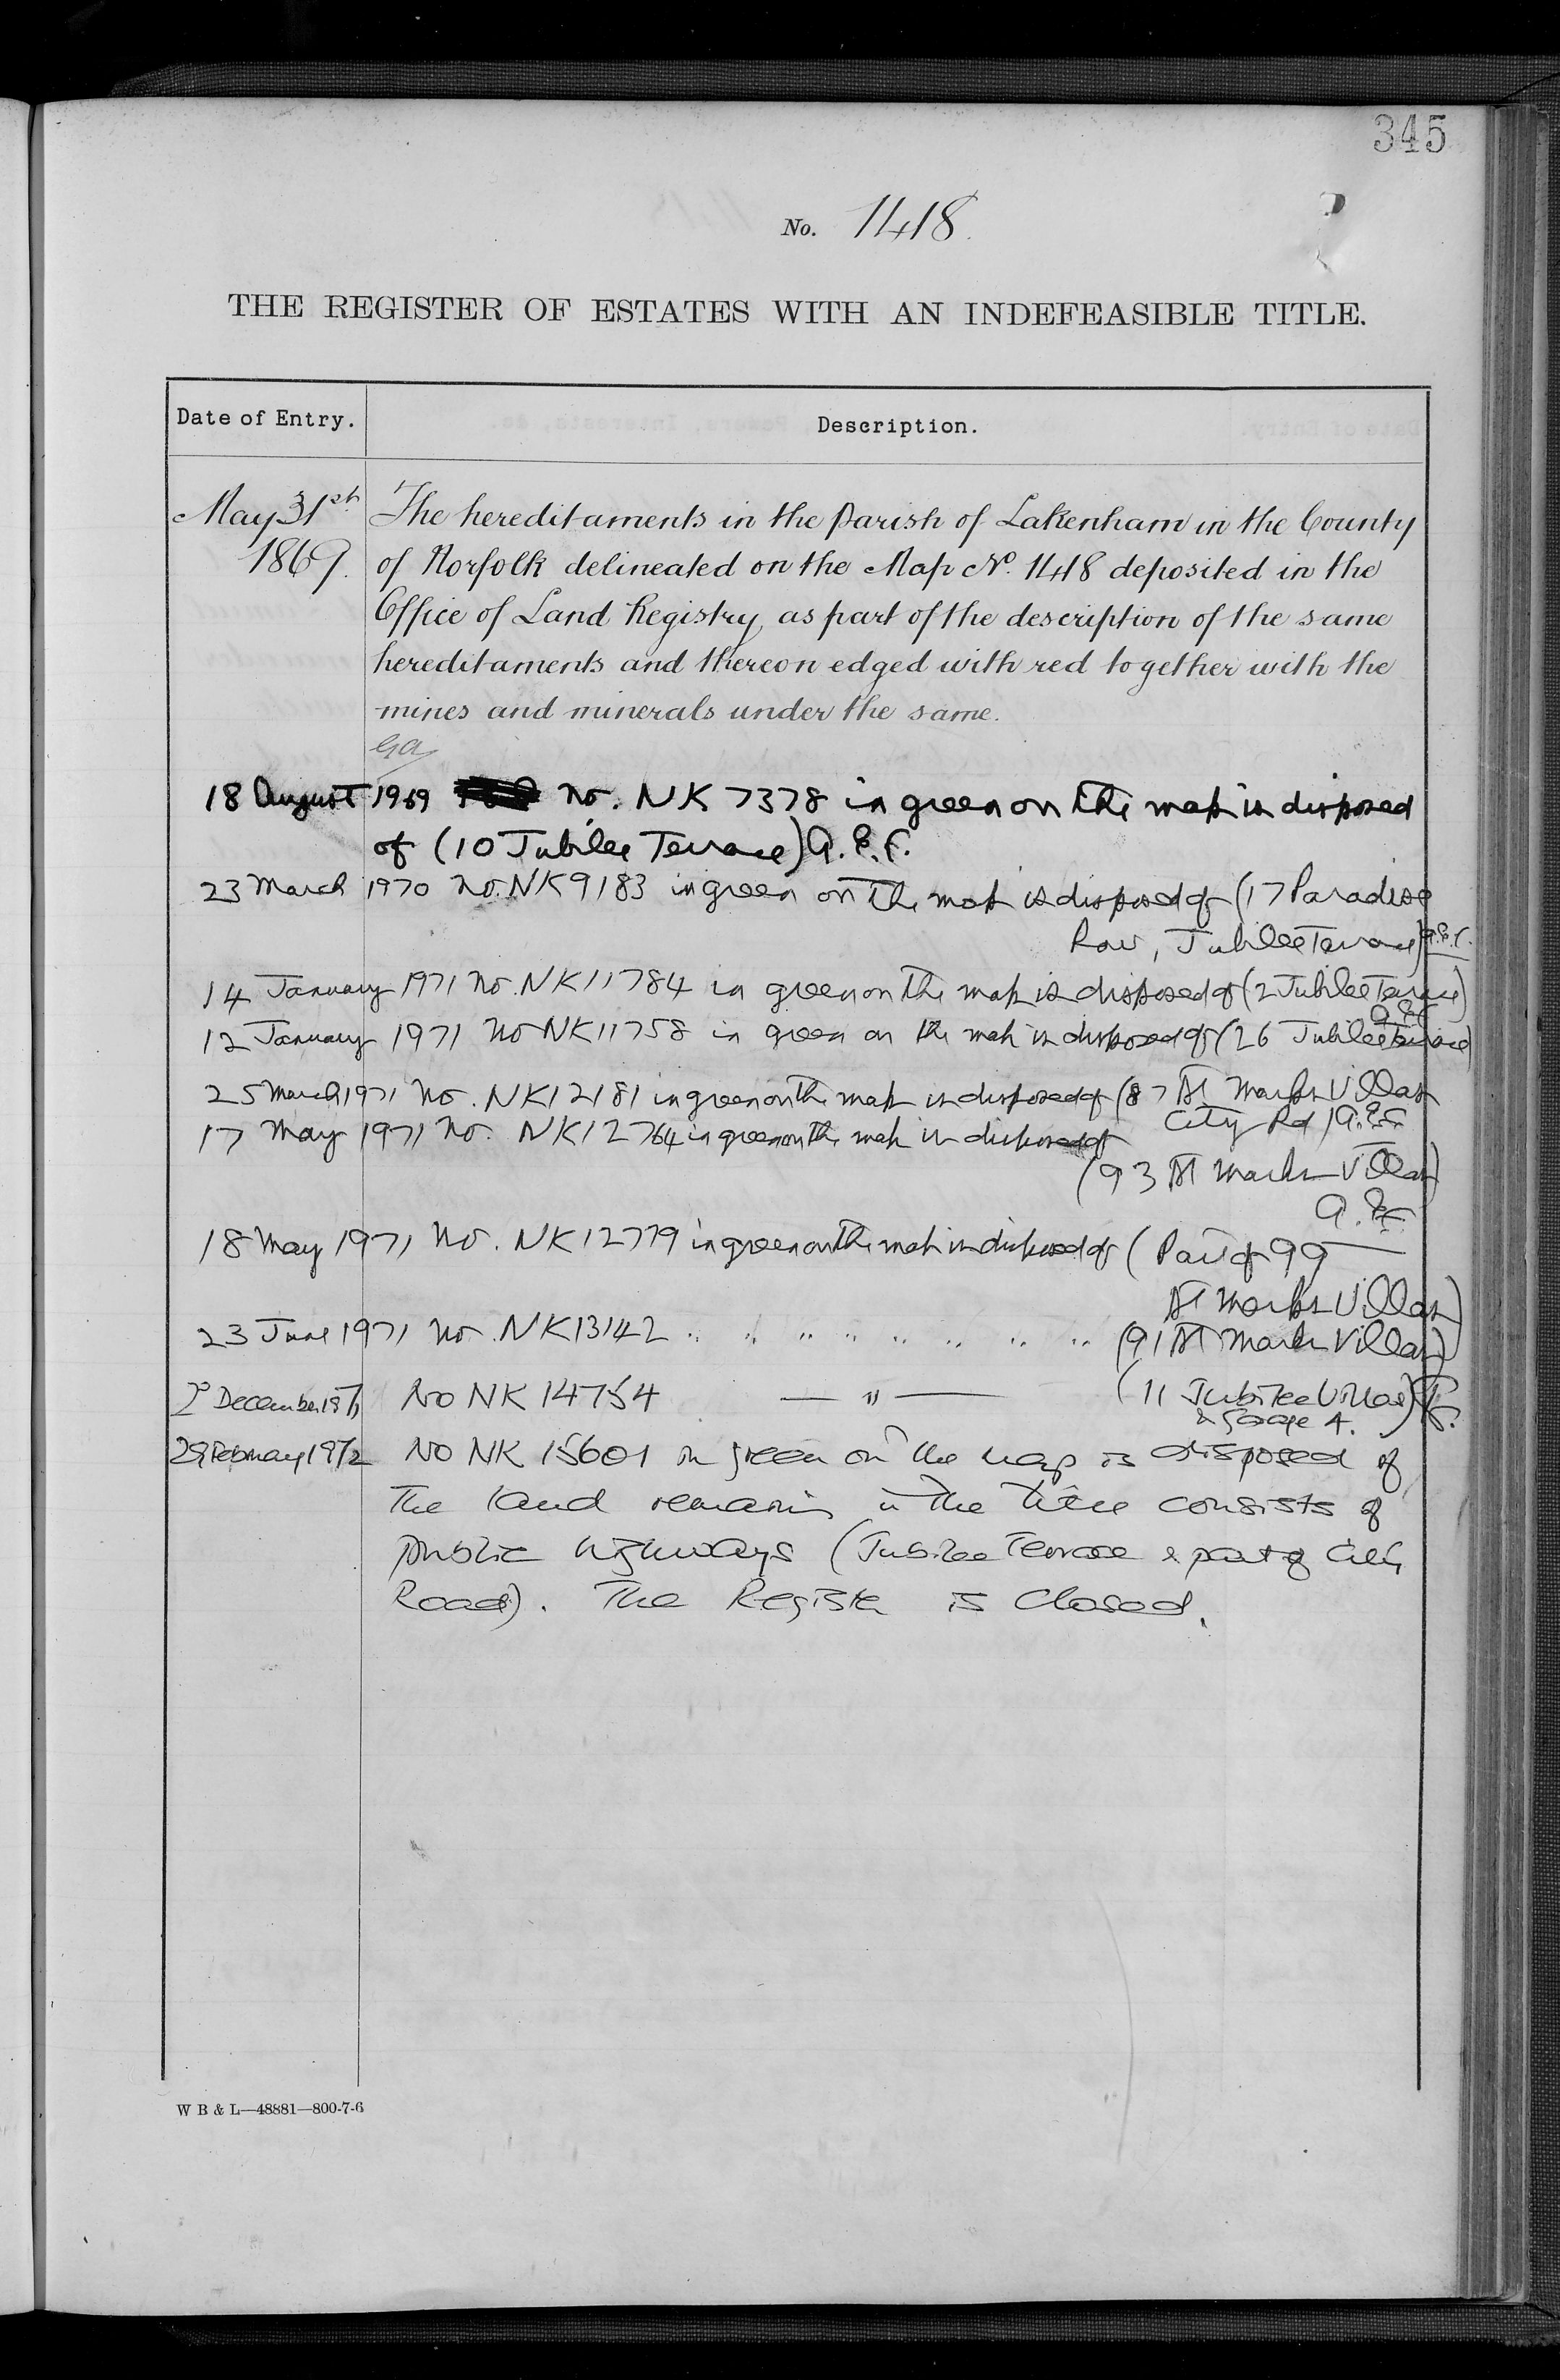 345
No. 1418.
THE REGISTER OF ESTATES WITH AN INDEFEASIBLE TITLE.
Date of Entry.
Description.
May 31st The hereditaments in the Parish of Lakenham in the County
1869. of Norfolk delineated on the Map No. 1418 deposited in the
Office of Land Registry, as part of the description of the same
hereditaments and thereon edged with red together with the
mines and minerals under the same.
18 August 1969 No. NK 7378 in green on the map is disposed
of (10 Jubilee Terrace) A.E.C.
23 March 1970 No. NK9183 in green on the map is disposed of (17 Paradise
Row, Jubilee Terrace) A.E.C.
14 January 1971 No. NK11784 in green on the map is disposed of (2 Jubilee Terrace)
A.E.C.
12 January 1971 No NK11758 in green on the map is disposed of (26 Jubilee Terrace)
25 March 1971 No. NK12181 in green on the map is disposed of (87 St Marks Villas
City Rd) A.E.C.
17 May 1971 No. NK12764 in green on the map is disposed of
(93 St Marks Villas)
A.E.C.
18 May 1971 No. NK12779 in green on the map is disposed of (Part of 99
St Marks Villas)
23 June 1971 No. NK13142 " " " " " " " " (91 St Marks Villas)
2 December 1971 No NK 14754 — " — (11 Jubilee Villas
& Garage 4.)
29 February 1972 No NK 15601 in green on the map is disposed of
The land remaining in the title consists of
public highways (Jubilee Terrace & part of City
Road). The Register is Closed.
W B & L—48881—800-7-6